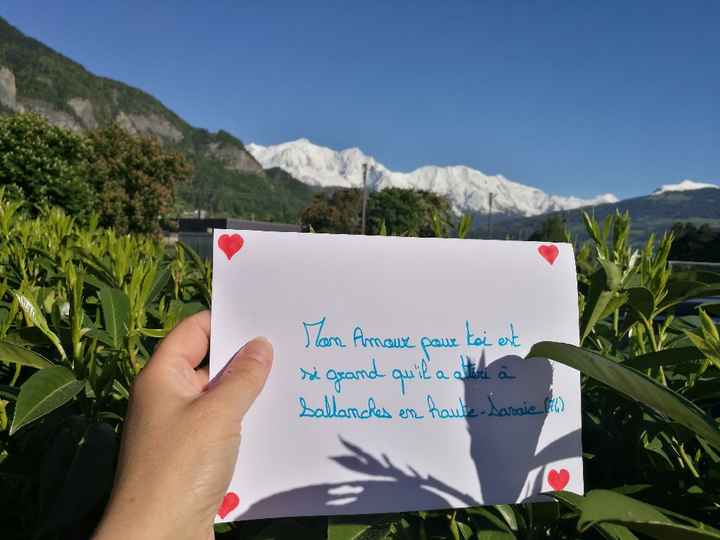 Mon Amour pour toi est
si grand qu'il a atteri à
Sallanches en haute-Savoie (74)